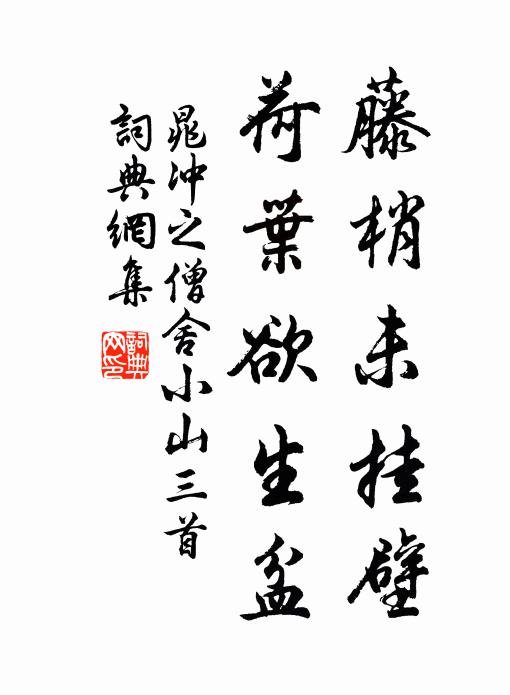 藤梢未挂壁
荷葉欲生盆
晁冲之僧舍小山三首
詞典網集
詞典網印